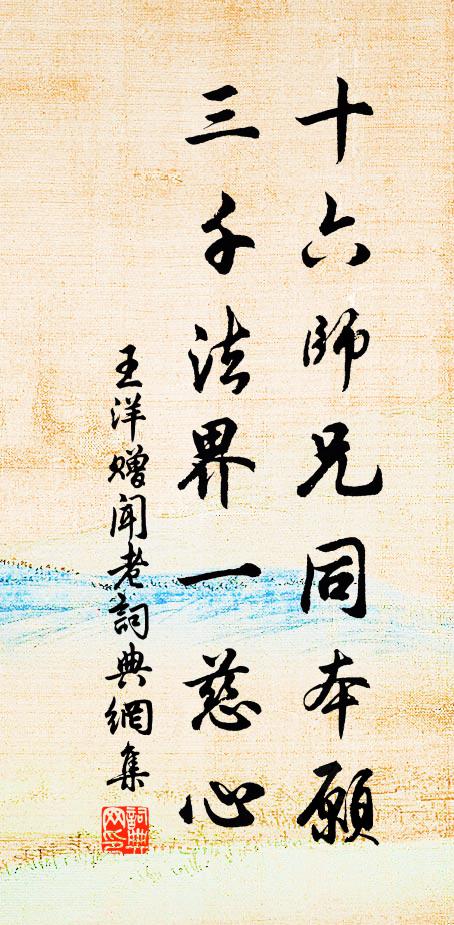 十六師兄同本願
三千法界一慈心
王洋贈聞老詞典網集
詞典網印